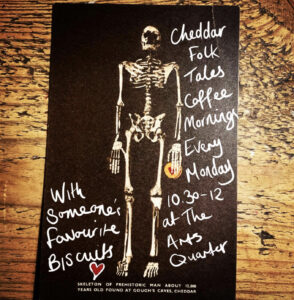 Cheddar
Folk
Tales
Coffee
Mornings
Every
Monday
10.30-12
at The
Arts
Quarter
With
Someone's
Favourite
Biscuits
SKELETON OF PREHISTORIC MAN ABOUT 12,000
YEARS OLD FOUND AT GOUGH'S CAVES, CHEDDAR